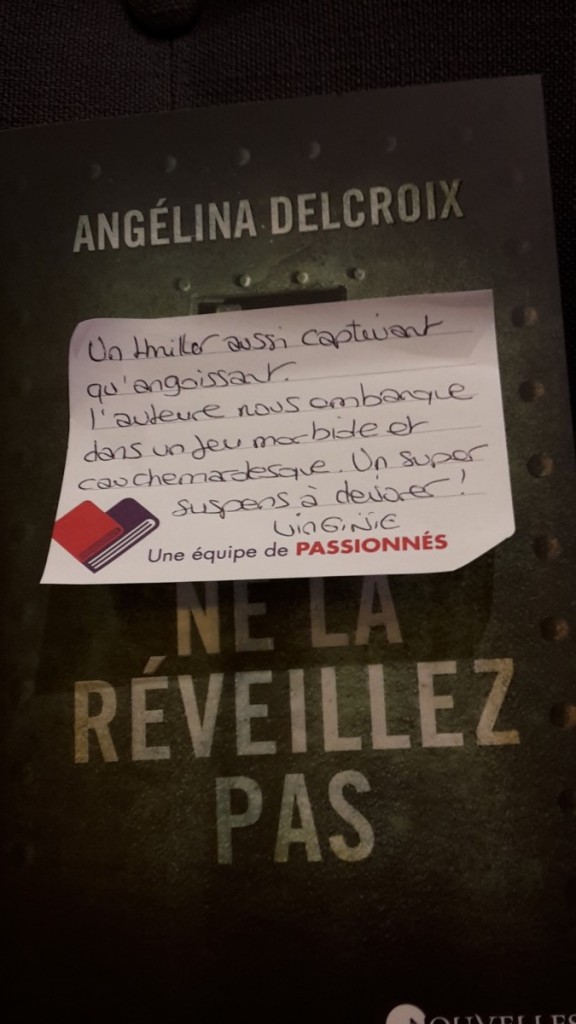 ANGÉLINA DELCROIX
Un thriller aussi captivant
qu'angoissant.
l'auteure nous embarque
dans un jeu morbide et
cauchemardesque. Un super
suspens à dévorer !
VIRGINIE
Une équipe de PASSIONNÉS
NE LA
RÉVEILLEZ
PAS
NOUVELLES